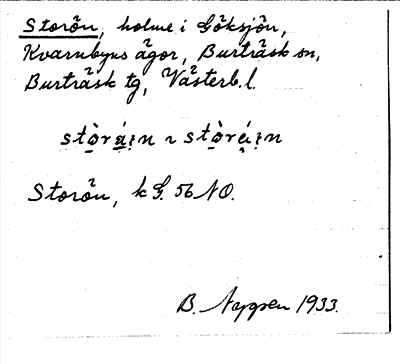 Storön, holme i Göksjön,
Kvarnbyns ägor, Burträsk sn,
Burträsk tg, Västerb. l.
stò̱rá̱i̩n ~ stò̱rá̤i̩n
Storön, k G. 56 NO.
B. Nygren 1933.